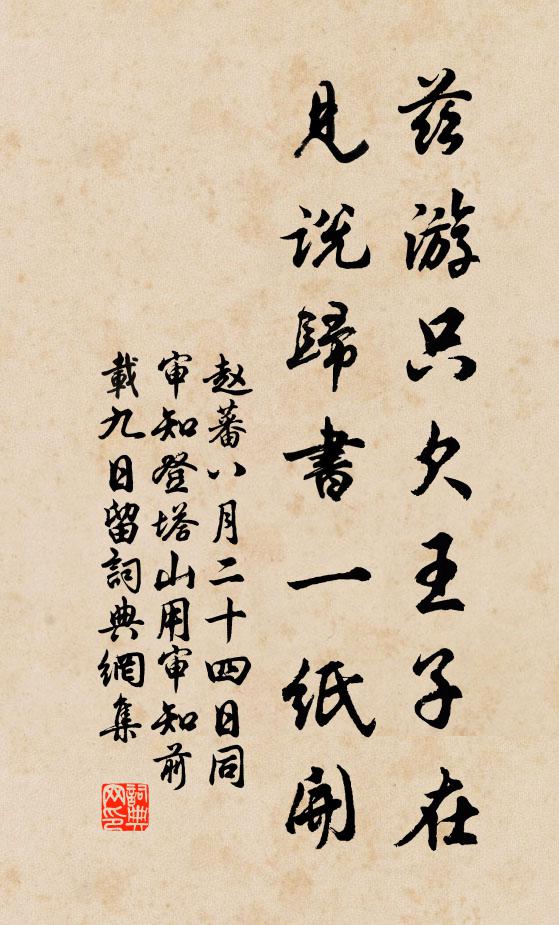 兹游只欠王子在
見説歸書一紙開
赵蕃八月二十四日同
审知登塔山用审知前
載九日留詞典網集
詞典网印